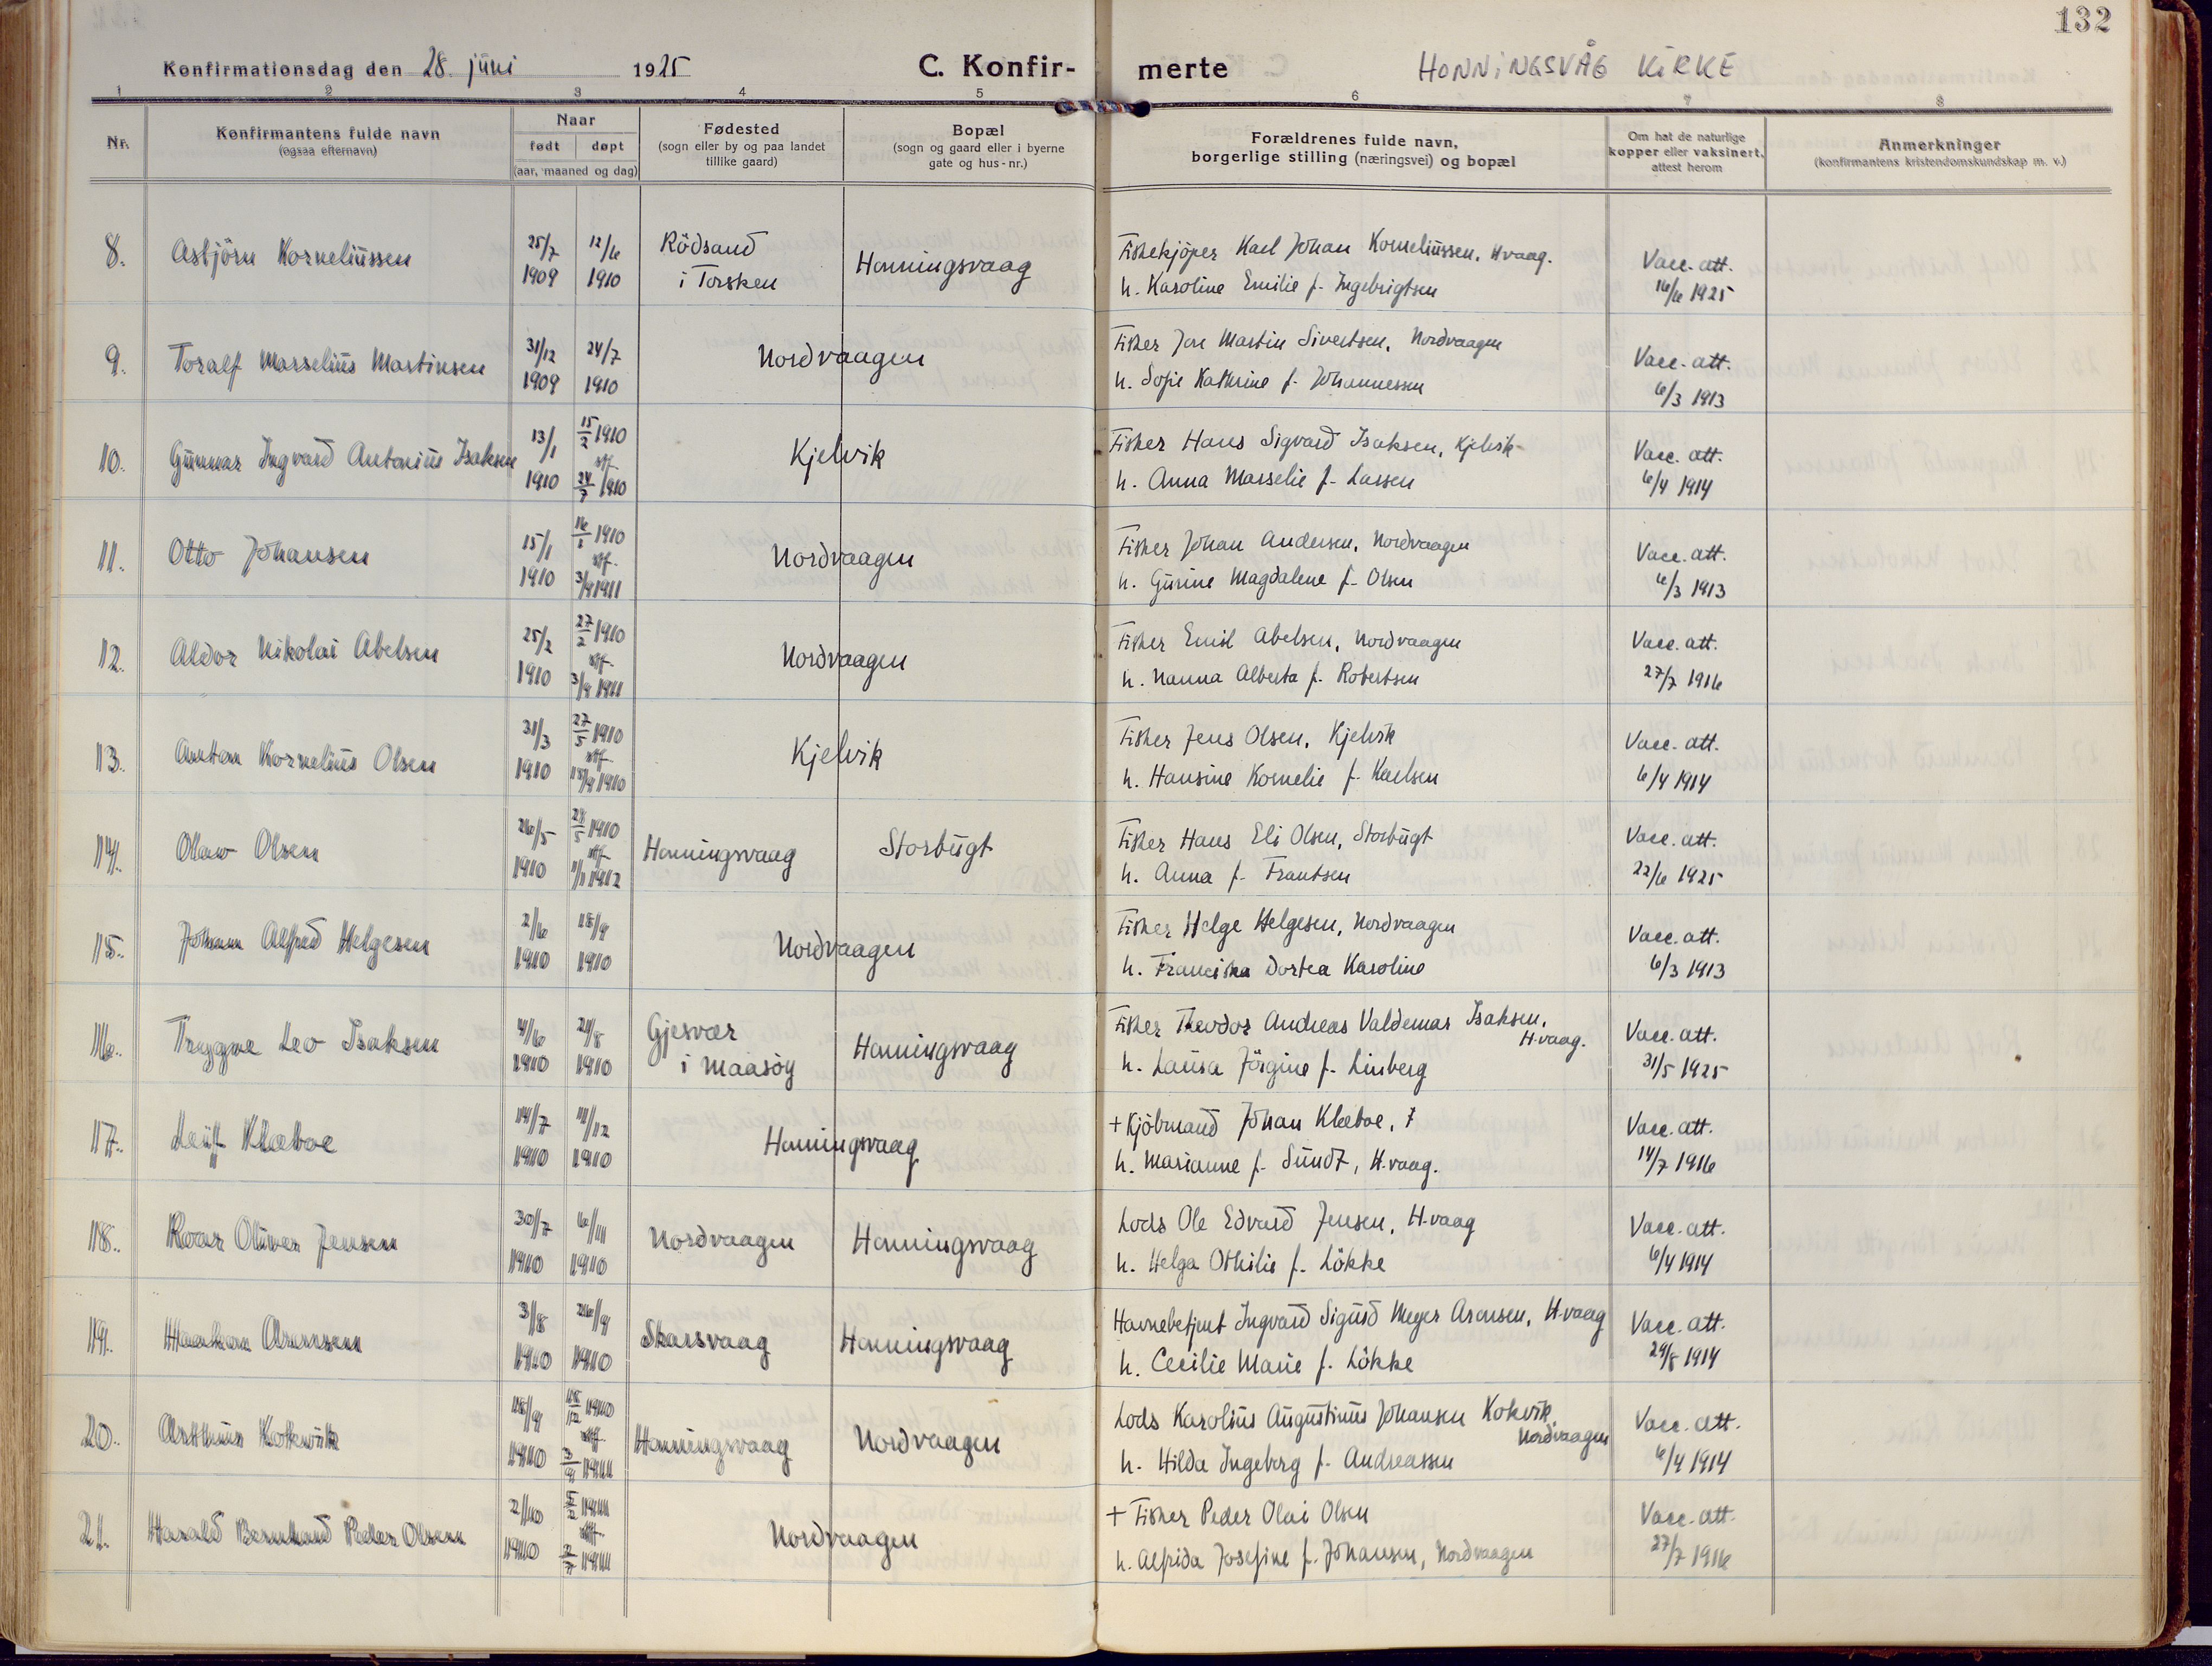 132
Konfirmationsdag den 28. juni 1925 C. Konfirmerte HONNINGSVÅG KIRKE
1 2 3 4 5 6 7 8
Nr.
Konfirmantens fulde navn
(ogsaa efternavn)
Naar
født døpt
(aar, maaned og dag)
Fødested
(sogn eller by og paa landet
tillike gaard)
Bopæl
(sogn og gaard eller i byerne
gate og hus-nr.)
Forældrenes fulde navn,
borgerlige stilling (næringsvei) og bopæl
Om hat de naturlige
kopper eller vaksinert,
attest herom
Anmerkninger
(konfirmantens kristendomskundskap m. v.)
8. Asbjörn Korneliussen 25/7 1909 12/6 1910 Rödsand i Torsken Honningsvaag
Fiskekjöper Karl Johan Korneliussen, Hvaag. Vacc. att.
h. Karoline Emilie f. Ingebrigtsen 16/6 1925
9. Toralf Masselius Martinsen 31/12 1909 24/7 1910 Nordvaagen
Fisker Jon Martin Sivertsen, Nordvaagen Vacc. att.
h. Sofie Kathrine f. Johannessen 6/3 1913
10. Gunnar Ingvard Antonius Isaksen 13/1 1910 15/2 1910 stf. 24/7 1910 Kjelvik
Fisker Hans Sigvard Isaksen, Kjelvik Vacc. att.
h. Anna Masselie f. Lassen 6/4 1914
11. Otto Johansen 15/1 1910 16/1 1910 stf. 3/9 1911 Nordvaagen
Fisker Johan Andersen, Nordvaagen Vacc. att.
h. Gurine Magdalene f. Olsen 6/3 1913
12. Aldor Nikolai Abelsen 25/2 1910 27/2 1910 stf. 3/9 1911 Nordvaagen
Fisker Emil Abelsen, Nordvaagen Vacc. att.
h. Nanna Alberta f. Robertsen 27/7 1916
13. Anton Kornelius Olsen 31/3 1910 27/5 1910 stf. 18/9 1910 Kjelvik
Fisker Jens Olsen, Kjelvik Vacc. att.
h. Hansine Kornelie f. Karlsen 6/4 1914
14. Olav Olsen 26/5 1910 28/5 1910 stf. 11/1 1912 Honningsvaag Storbugt
Fisker Hans Eli Olsen, Storbugt Vacc. att.
h. Anna f. Frantsen 22/6 1925
15. Johan Alfred Helgesen 2/6 1910 18/9 1910 Nordvaagen
Fisker Helge Helgesen, Nordvaagen Vacc. att.
h. Franciska Dortea Karoline 6/3 1913
16. Trygve Leo Isaksen 4/6 1910 21/8 1910 Gjesvær i Maasöy Honningsvaag
Fisker Theodor Andreas Valdemar Isaksen, H.vaag. Vacc. att.
h. Laura Jörgine f. Linberg 31/5 1925
17. Leif Klæboe 14/7 1910 11/12 1910 Honningsvaag
+ Kjöbmand Johan Klæboe, Vacc. att.
h. Marianne f. Sundt, H.vaag. 14/7 1916
18. Roar Oliver Jensen 30/7 1910 6/11 1910 Nordvaagen Honningsvaag
Lods Ole Edvard Jensen, H.vaag Vacc. att.
h. Helga Othilie f. Lökke 6/4 1914
19. Haakon Aronsen 3/8 1910 26/9 1910 Skarsvaag Honningsvaag
Havnebetjent Ingvard Sigurd Meyer Aronsen, H.vaag Vacc. att.
h. Cecilie Marie f. Lökke 29/8 1914
20. Arthur Kokvik 18/9 1910 18/12 1910 stf. 3/9 1911 Honningsvaag Nordvaagen
Lods Karolius Augustinus Johansen Kokvik, Nordvaagen Vacc. att.
h. Hilda Ingeborg f. Andreassen 6/4 1914
21. Harald Bernhard Peder Olsen 2/10 1910 5/2 1911 stf. 2/7 1911 Nordvaagen
+ Fisker Peder Olai Olsen Vacc. att.
h. Alfrida Josefine f. Johansen, Nordvaagen 27/7 1916